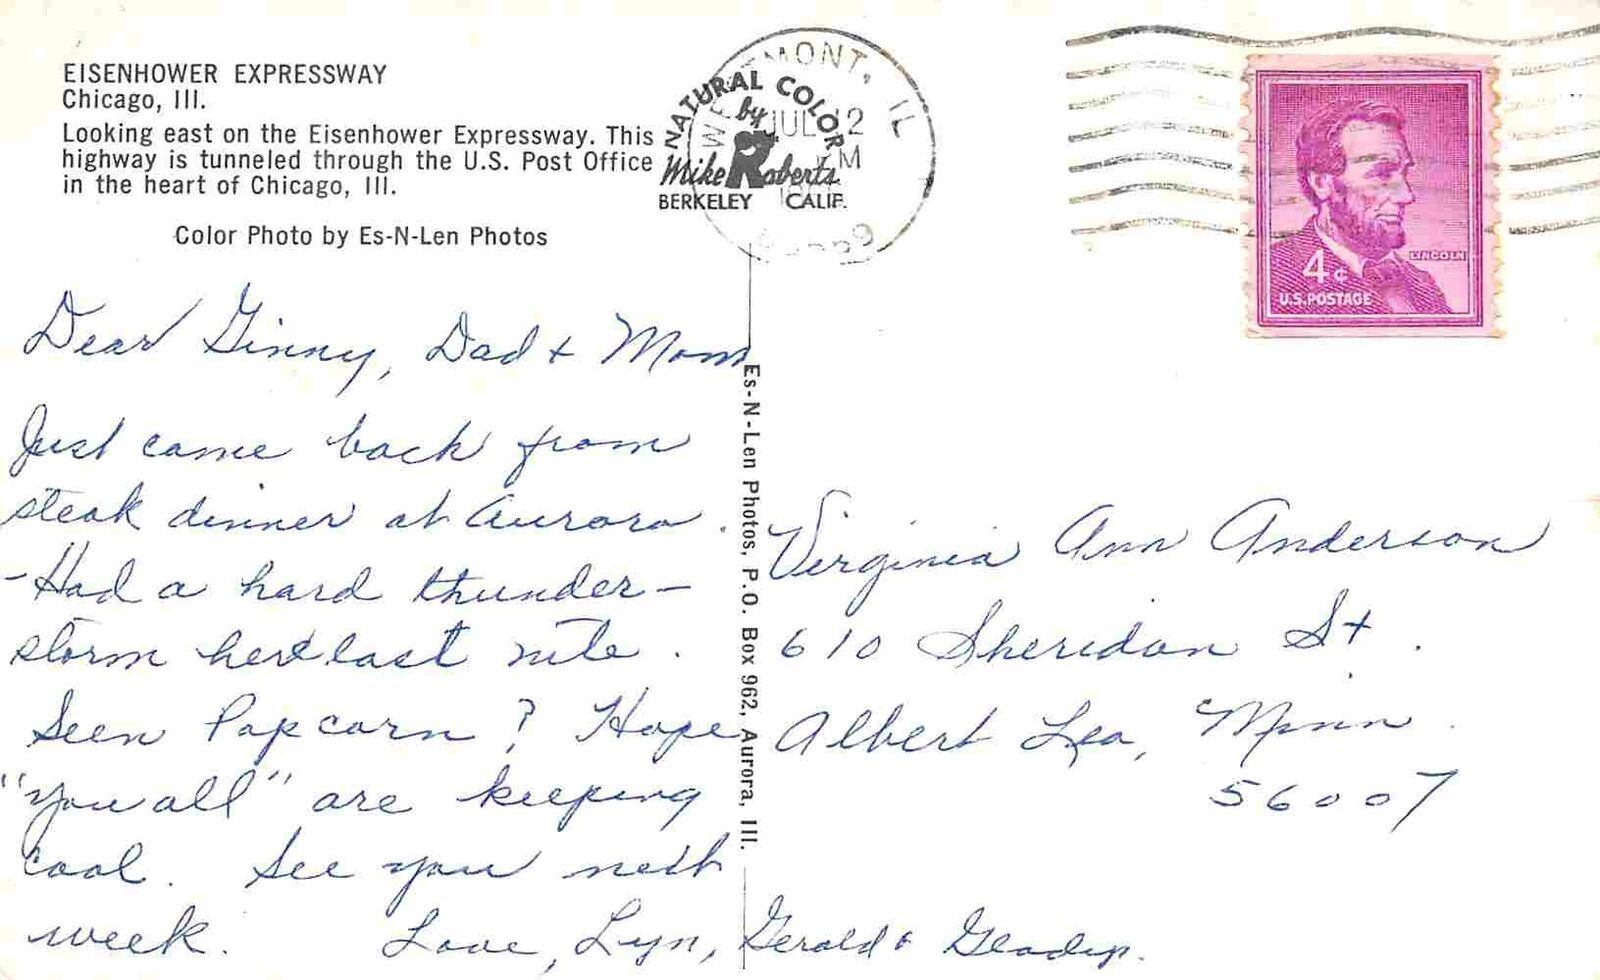 EISENHOWER EXPRESSWAY
Chicago, Ill.
Looking east on the Eisenhower Expressway. This
highway is tunneled through the U.S. Post Office
in the heart of Chicago, Ill.
Color Photo by Es-N-Len Photos
NATURAL COLOR
by
Mike Roberts
BERKELEY CALIF.
MONT, IL
JUL 12
4¢
LINCOLN
U.S. POSTAGE
Dear Ginny, Dad & Mom
Just came back from
steak dinner at Aurora.
-Had a hard thunder-
storm here last nite.
Seen Popcorn? Hope
"you all" are keeping
cool. See you next
week. Love, Lyn, Gerald & Gladys.
Es-N-Len Photos, P.O. Box 962, Aurora, Ill.
Virginia Ann Anderson
610 Sheridan St.
Albert Lea, Minn.
56007